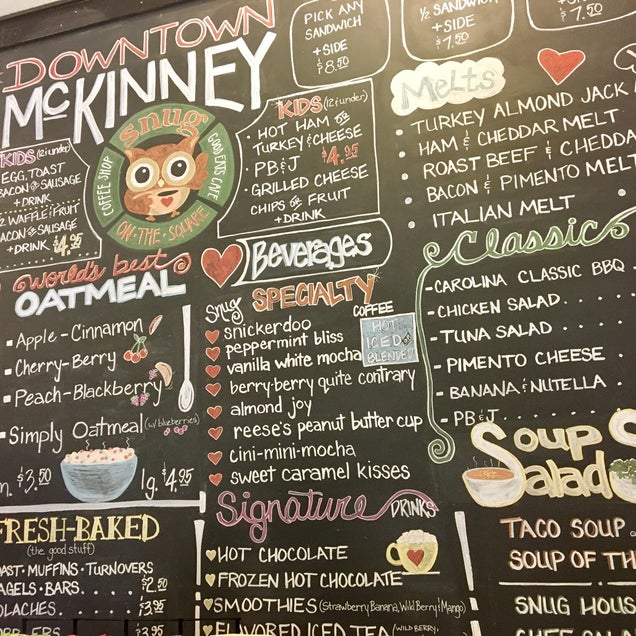 DOWNTOWN
McKINNEY
snug
COFFEE SHOP
GOOD EATS CAFE
ON·THE·SQUARE
KIDS (12 & under)
EGG, TOAST
BACON OR SAUSAGE
+ DRINK
WAFFLE & FRUIT
BACON OR SAUSAGE
+ DRINK $4.95
KIDS (12 & under)
• HOT HAM OR
TURKEY & CHEESE
• PB & J $4.95
• GRILLED CHEESE
CHIPS OR FRUIT
+ DRINK
PICK ANY
SANDWICH
+ SIDE
$8.50
½ SANDWICH
+ SIDE
$7.50
$7.50
Melts
• TURKEY ALMOND JACK
• HAM & CHEDDAR MELT
• ROAST BEEF & CHEDDA
• BACON & PIMENTO MELT
• ITALIAN MELT
World's best
OATMEAL
▪ Apple-Cinnamon
▪ Cherry-Berry
▪ Peach-Blackberry
▪ Simply Oatmeal (w/ blueberries)
m. $3.50 lg. $4.95
Beverages
Snug SPECIALTY
COFFEE
HOT
ICED OR
BLENDED
snickerdoo
peppermint bliss
vanilla white mocha
berry-berry quite contrary
almond joy
reese's peanut butter cup
cini-mini-mocha
sweet caramel kisses
Classics
- CAROLINA CLASSIC BBQ .
- CHICKEN SALAD . . . .
- TUNA SALAD . . . . .
- PIMENTO CHEESE . .
- BANANA & NUTELLA . .
- PB & J . . . . . . .
FRESH-BAKED
(the good stuff)
AST · MUFFINS · TURNOVERS
AGELS · BARS . . . . $2.50
OLACHES . . . . $3.95
$3.95
Signature DRINKS
HOT CHOCOLATE
FROZEN HOT CHOCOLATE
SMOOTHIES (Strawberry Banana, Wild Berry & Mango)
FLAVORED ICED TEA (WILD BERRY,
Soup &
Salad
TACO SOUP
SOUP OF TH
SNUG HOUS